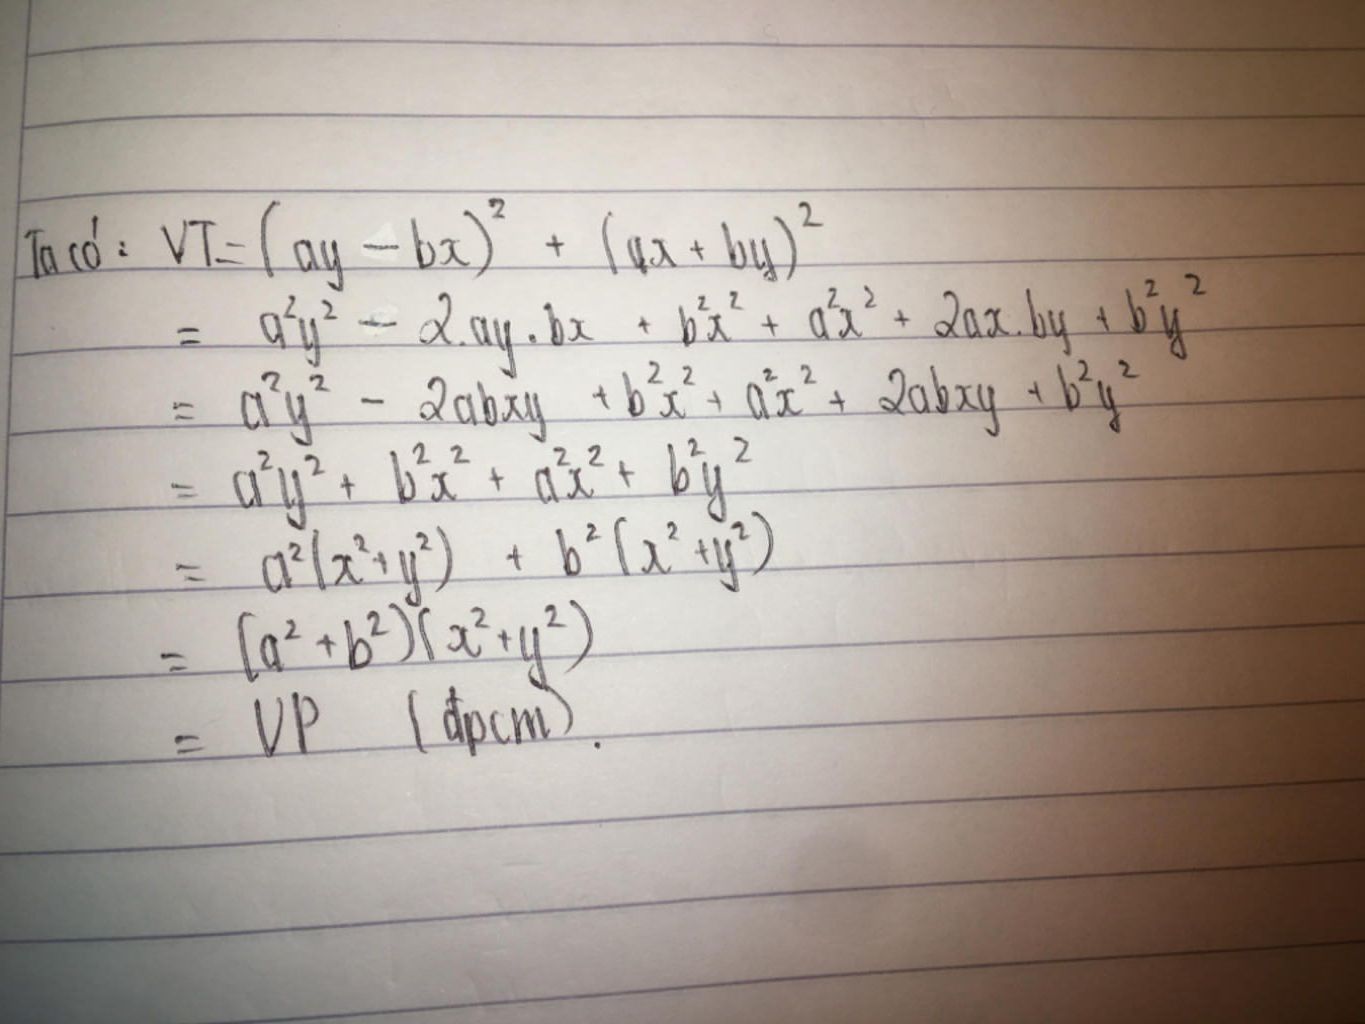 Ta có: VT = (ay - bx)² + (ax + by)²
= a²y² - 2.ay.bx + b²x² + a²x² + 2ax.by + b²y²
= a²y² - 2abxy + b²x² + a²x² + 2abxy + b²y²
= a²y² + b²x² + a²x² + b²y²
= a²(x²+y²) + b²(x²+y²)
= (a²+b²)(x²+y²)
= VP (đpcm).